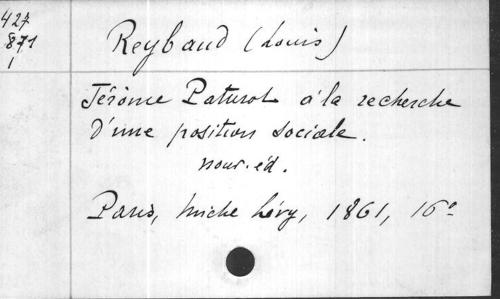 427
871
1
Reybaud (Louis)
Jérôme Paturot à la recherche
d'une position sociale.
nouv. éd.
Paris, Miche Lévy, 1861, 16º